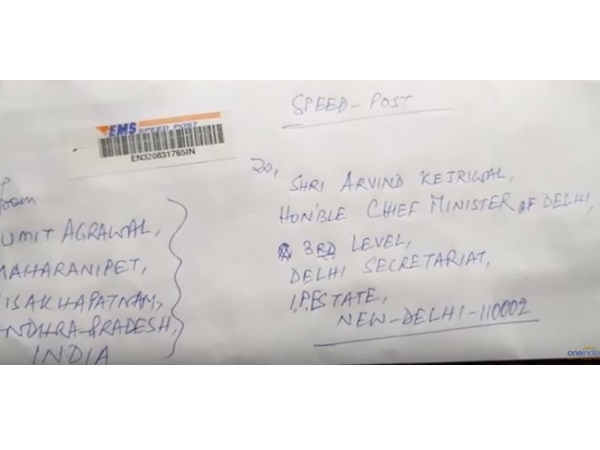 SPEED-POST
EMS SPEED POST
EN320831765IN
To,
SHRI ARVIND KEJRIWAL,
HON'BLE CHIEF MINISTER OF DELHI,
3RD LEVEL,
DELHI SECRETARIAT,
I.P.ESTATE,
NEW-DELHI-110002
UMIT AGRAWAL,
MAHARANIPET,
ISAKHAPATNAM,
NDHRA-PRADESH,
INDIA
oneindia